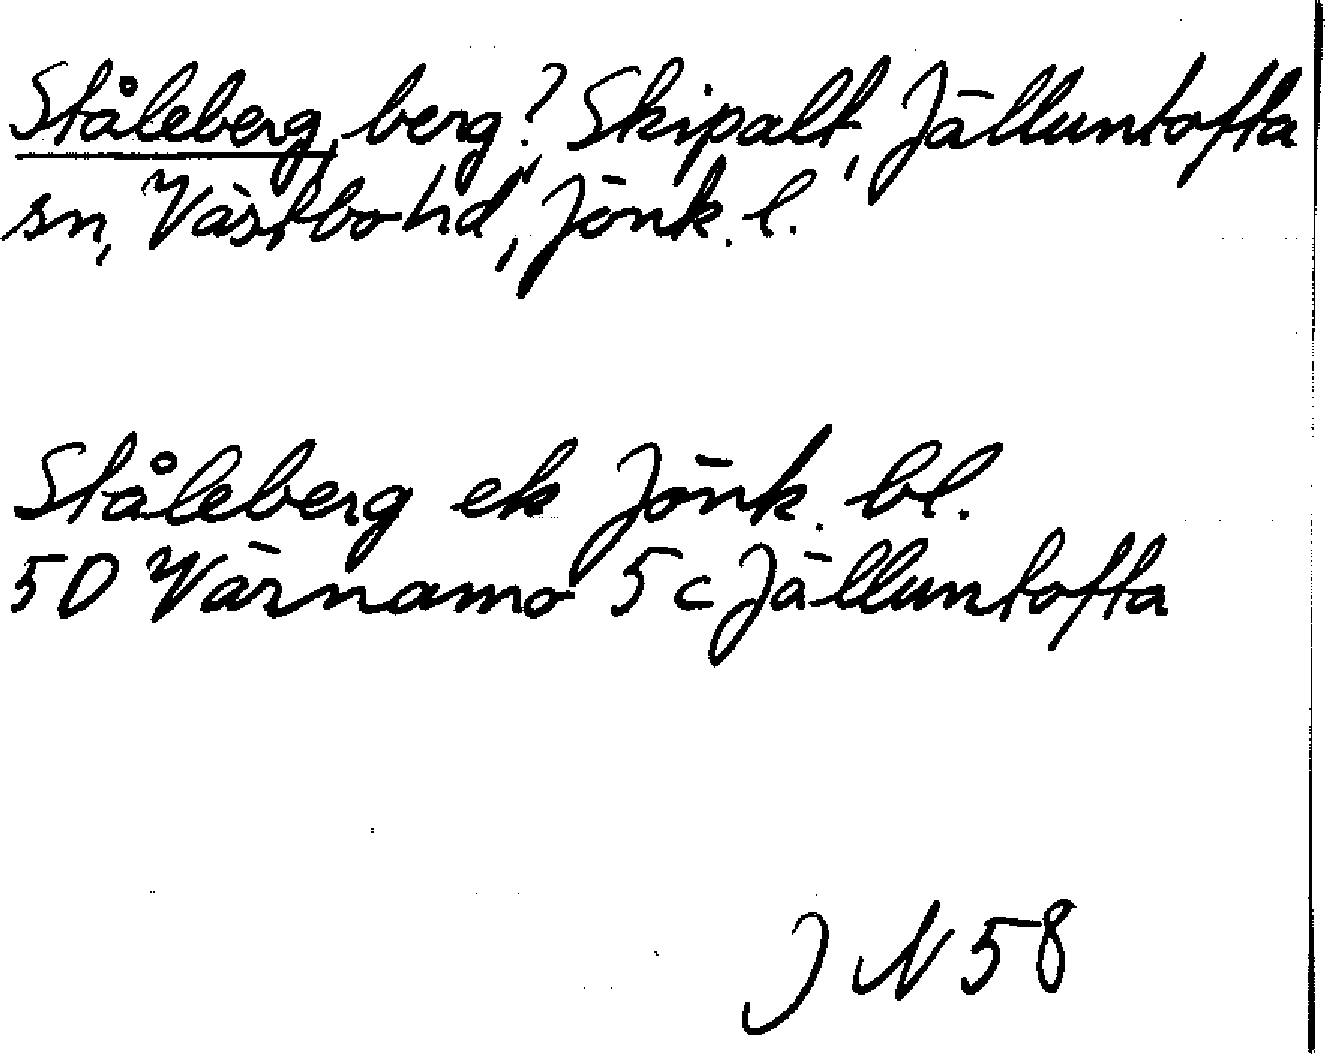 Ståleberg, berg? Skipalt, Jälluntofta
sn, Västbo hd, Jönk. l.
Ståleberg ek Jönk. bl.
5D Värnamo 5c Jälluntofta
J N 58